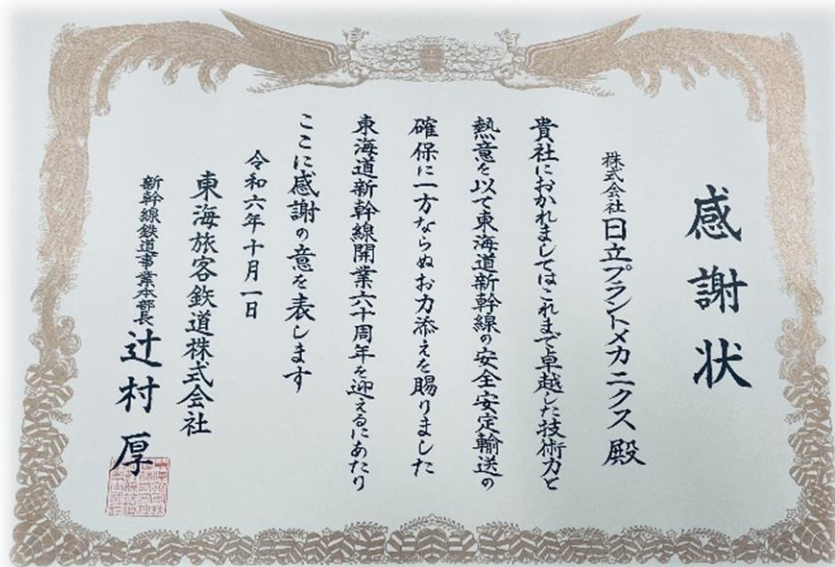 感謝状
株式会社日立プラントメカニクス殿
貴社におかれましてはこれまで卓越した技術力と
熱意を以て東海道新幹線の安全安定輸送の
確保に一方ならぬお力添えを賜りました
東海道新幹線開業六十周年を迎えるにあたり
ここに感謝の意を表します
令和六年十月一日
東海旅客鉄道株式会社
新幹線鉄道事業本部長 辻村厚